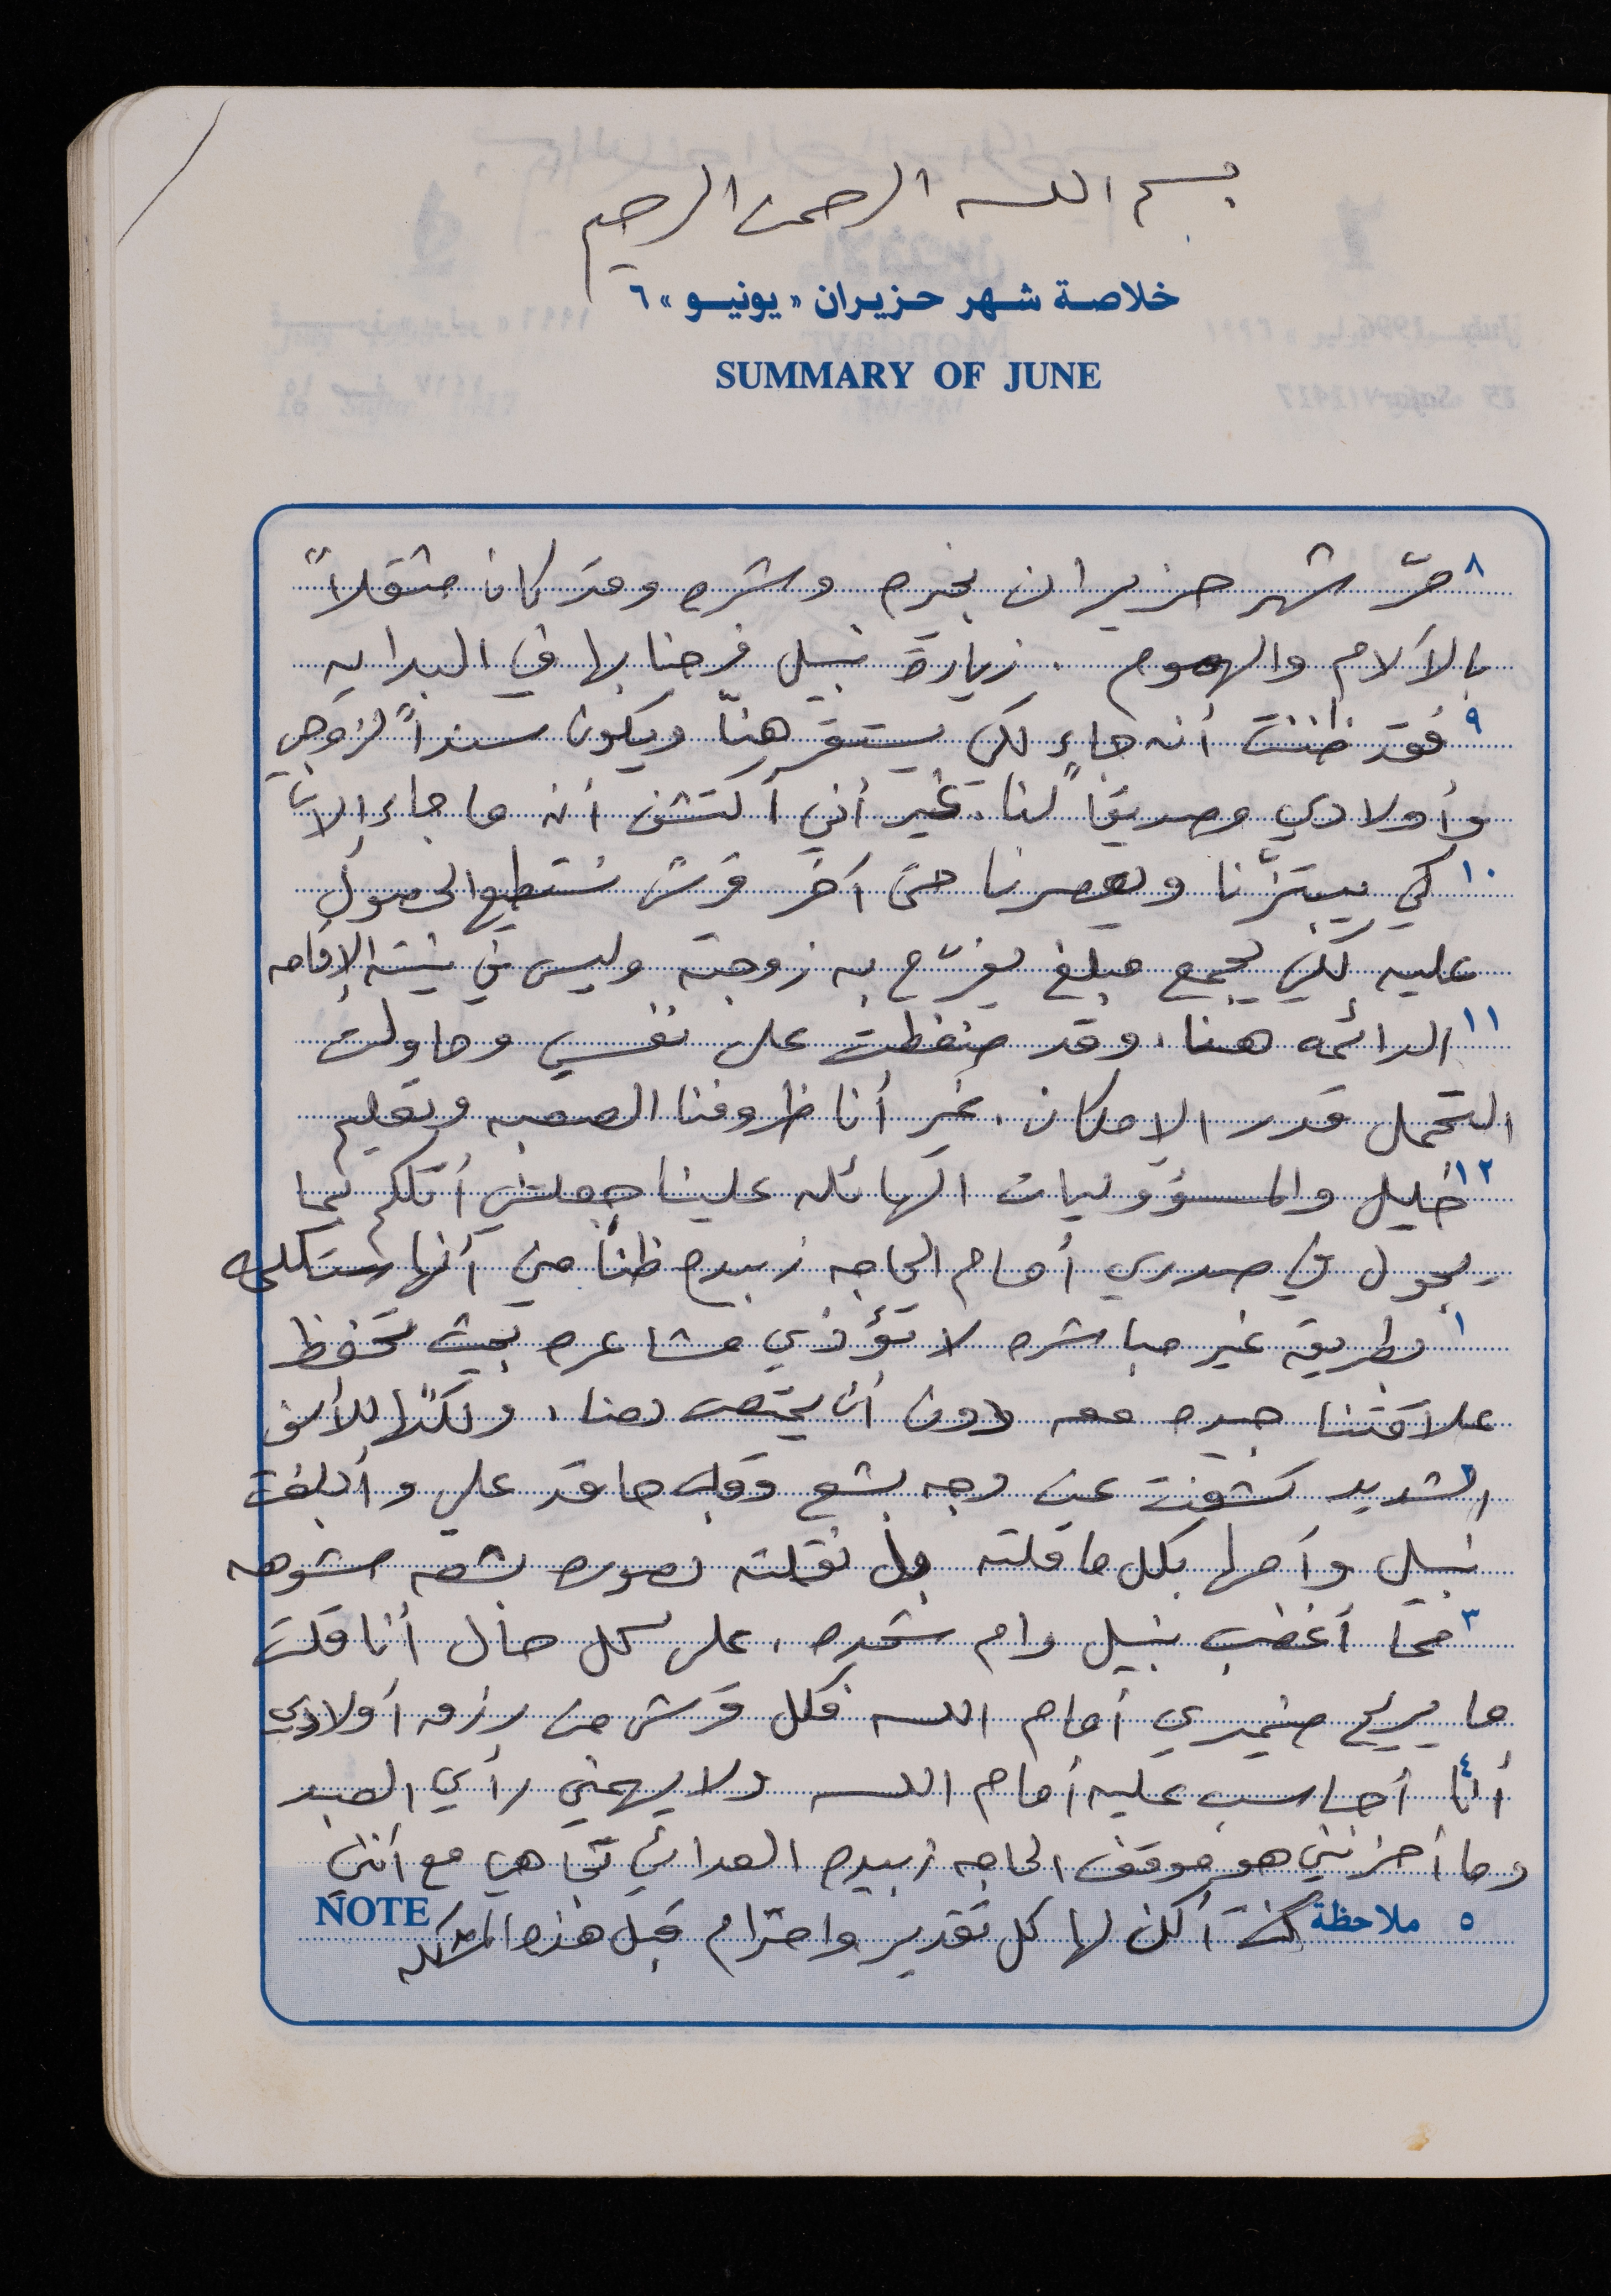 بسم الله الرحمن الرحيم
خلاصة شهر حزيران « يونيو » ٦
SUMMARY OF JUNE
٨ مرّ شهر حزيران بخيره وشره وقد كان مثقلاً
بالآلام والهموم . زيارة نبيل فرحنا بها في البدايه
٩ فقد ظننت أنه جاء لكي يستقر هنا ويكون سنداً لزوجي
وأولادي وصديقاً لنا، غير أني أكتشف أنه ما جاء إلا
١٠ كي يبتزّنا ويعصرنا حتى آخر قرش نستطيع الحصول
عليه لكي يجمع مبلغ يفرّح به زوجته وليس في نيته الإقامه
١١ الدائمه هنا، وقد ضغطت على نفسي وحاولت
التحمل قدر الامكان، غير أنا ظروفنا الصعبه وتعليم
١٢ خليل والمسؤوليات الهائله علينا جعلتني أتكلم بما
يجول في صدري أمام الحاجه زبيده ظناً مني أنها ستكلمه
١ بطريقه غير مباشره لا تؤذي مشاعره بحيث تحفظ
علاقتنا جيده معه دون أن يمتص دمنا، ولكنها للأسف
٢ الشديد كشفت عن وجه بشع وقلب حاقد علي وأبلغت
نبيل وأهلها بكل ما قلته بل نقلته بصوره بشعه مشوهه
٣ مما أغضب نبيل وام شحده، على كل حال أنا قلت
ما يريح ضميري أمام الله فكل قرش من رزق أولادي
٤ أنا أحاسب عليه أمام الله ولا يهمني رأي العبد
وما أحزنني هو موقف الحاجه زبيده العدائي تجاهي مع أنني
٥ ملاحظة كنت أكن لها كل تقدير واحترام قبل هذه المشكله NOTE